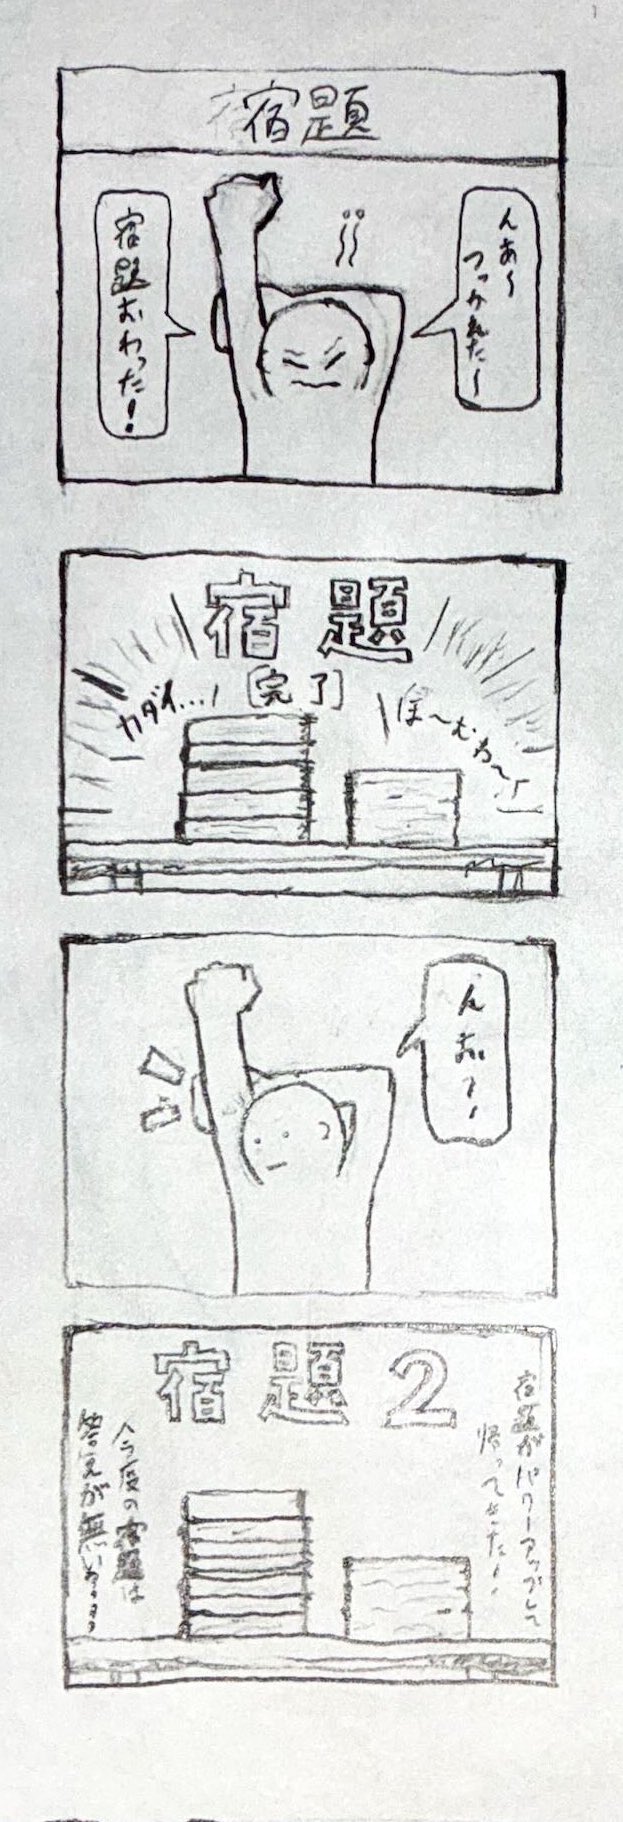 宿題
んあ〜
つっかれた〜
宿題おわった!
宿題
[完了]
カダイ…!
ほ〜むわ〜く
んお〜!
宿題2
宿題がパワーアップして
帰ってきた!
今度の宿題は
答えが無い…。